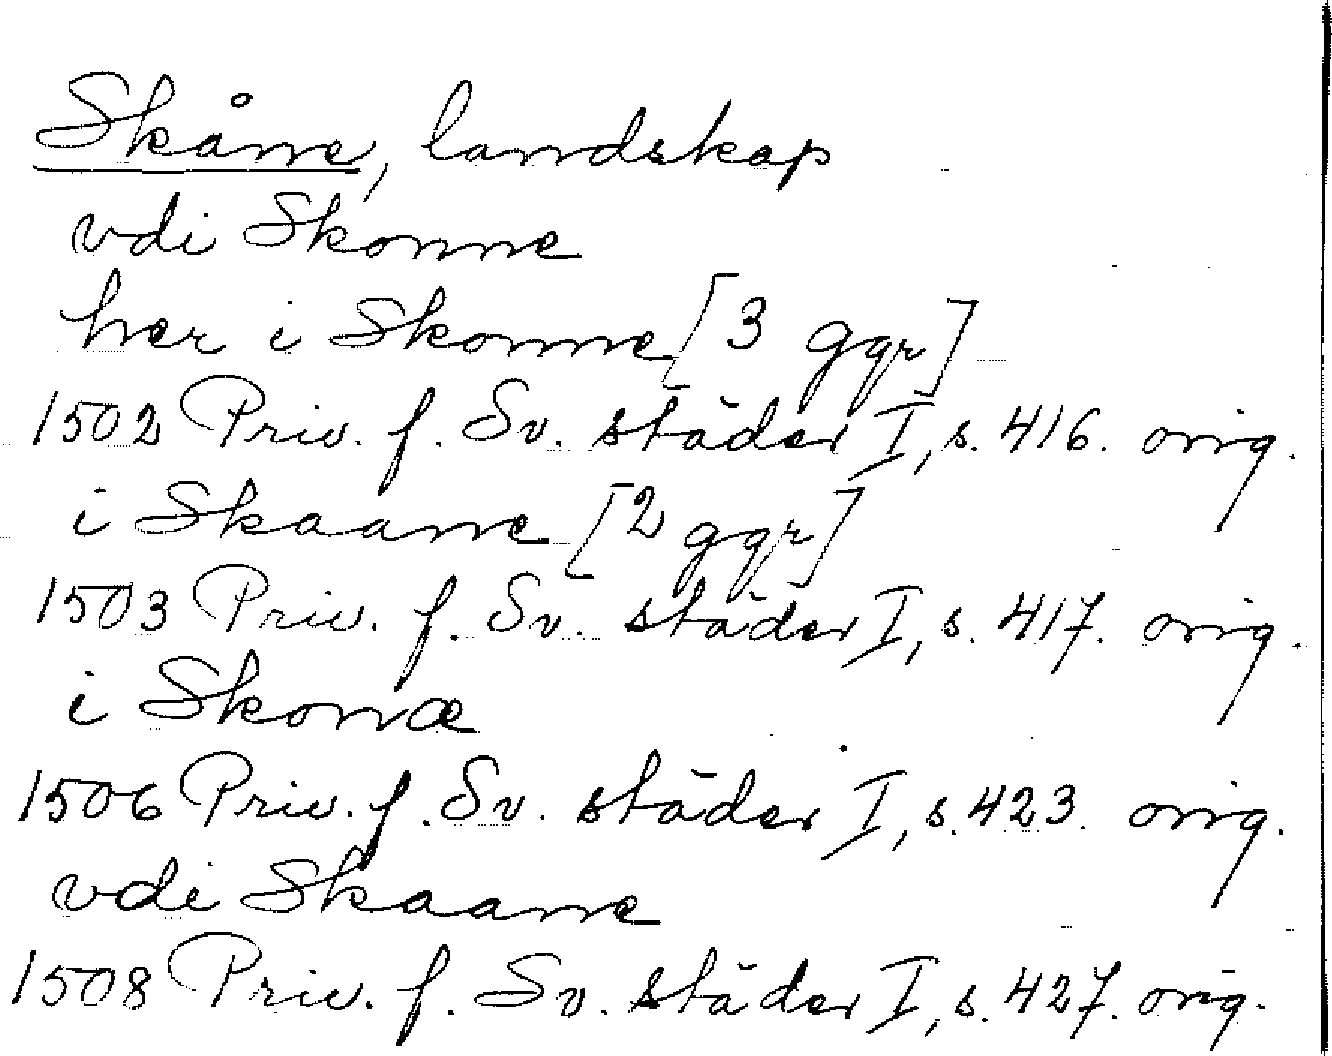 Skåne, landskap
vdi Skonne
her i Skonne [3 ggr]
1502 Priv. f. Sv. städer I, s. 416. orig.
i Skaane [2 ggr]
1503 Priv. f. Sv. städer I, s. 417. orig.
i Skonæ
1506 Priv. f. Sv. städer I, s. 423. orig.
vdi Skaane
1508 Priv. f. Sv. städer I, s. 427. orig.